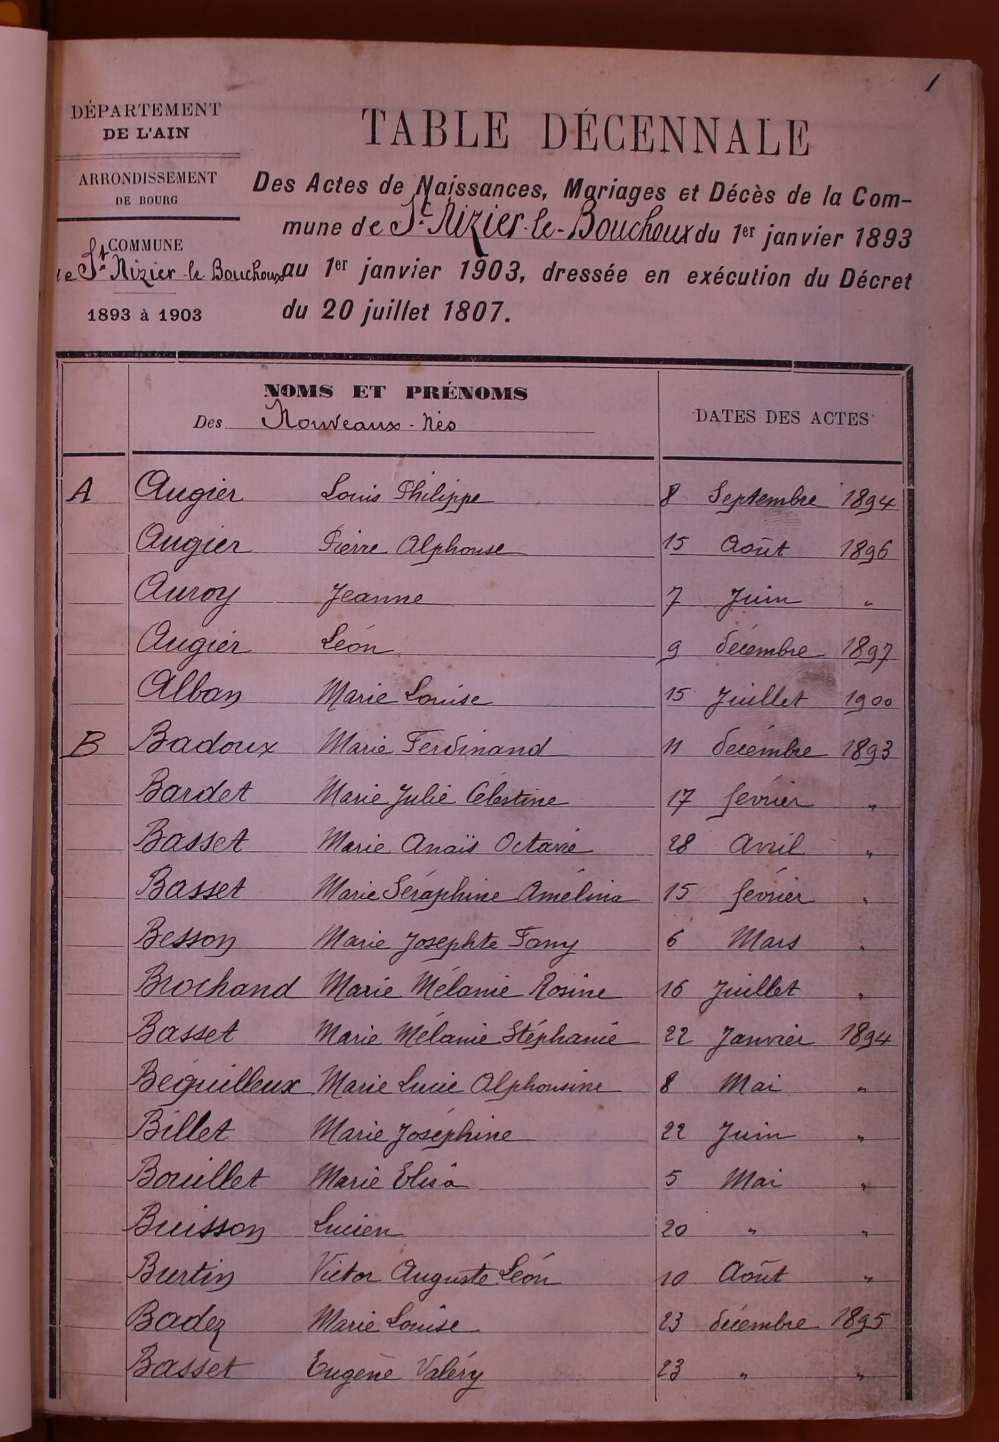 1
DÉPARTEMENT
DE L'AIN
ARRONDISSEMENT
DE BOURG
COMMUNE
de St Nizier-le-Bouchoux
1893 à 1903
TABLE DÉCENNALE
Des Actes de Naissances, Mariages et Décès de la Com-
mune de St Nizier-le-Bouchoux du 1er janvier 1893
au 1er janvier 1903, dressée en exécution du Décret
du 20 juillet 1807.
NOMS ET PRÉNOMS
Des Nouveaux-Nés
DATES DES ACTES
A Augier Louis Philippe 8 Septembre 1894
Augier Pierre Alphonse 15 Août 1896
Auroy Jeanne 7 Juin "
Augier Léon 9 décembre 1897
Alban Marie Louise 15 Juillet 1900
B Badoux Marie Ferdinand 11 décembre 1893
Bardet Marie Julie Célestine 17 février "
Basset Marie Anaïs Octavie 28 Avril "
Basset Marie Séraphine Amélina 15 février "
Besson Marie Josephte Fany 6 Mars "
Brochand Marie Mélanie Rosine 16 Juillet "
Basset Marie Mélanie Stéphanie 22 Janvier 1894
Béguilleux Marie Lucie Alphonsine 8 Mai "
Billet Marie Joséphine 22 Juin "
Bouillet Marie Elisa 5 Mai "
Buisson Lucien 20 " "
Burtin Victor Auguste Léon 10 Août "
Badez Marie Louise 23 décembre 1895
Basset Eugène Valéry 23 " "